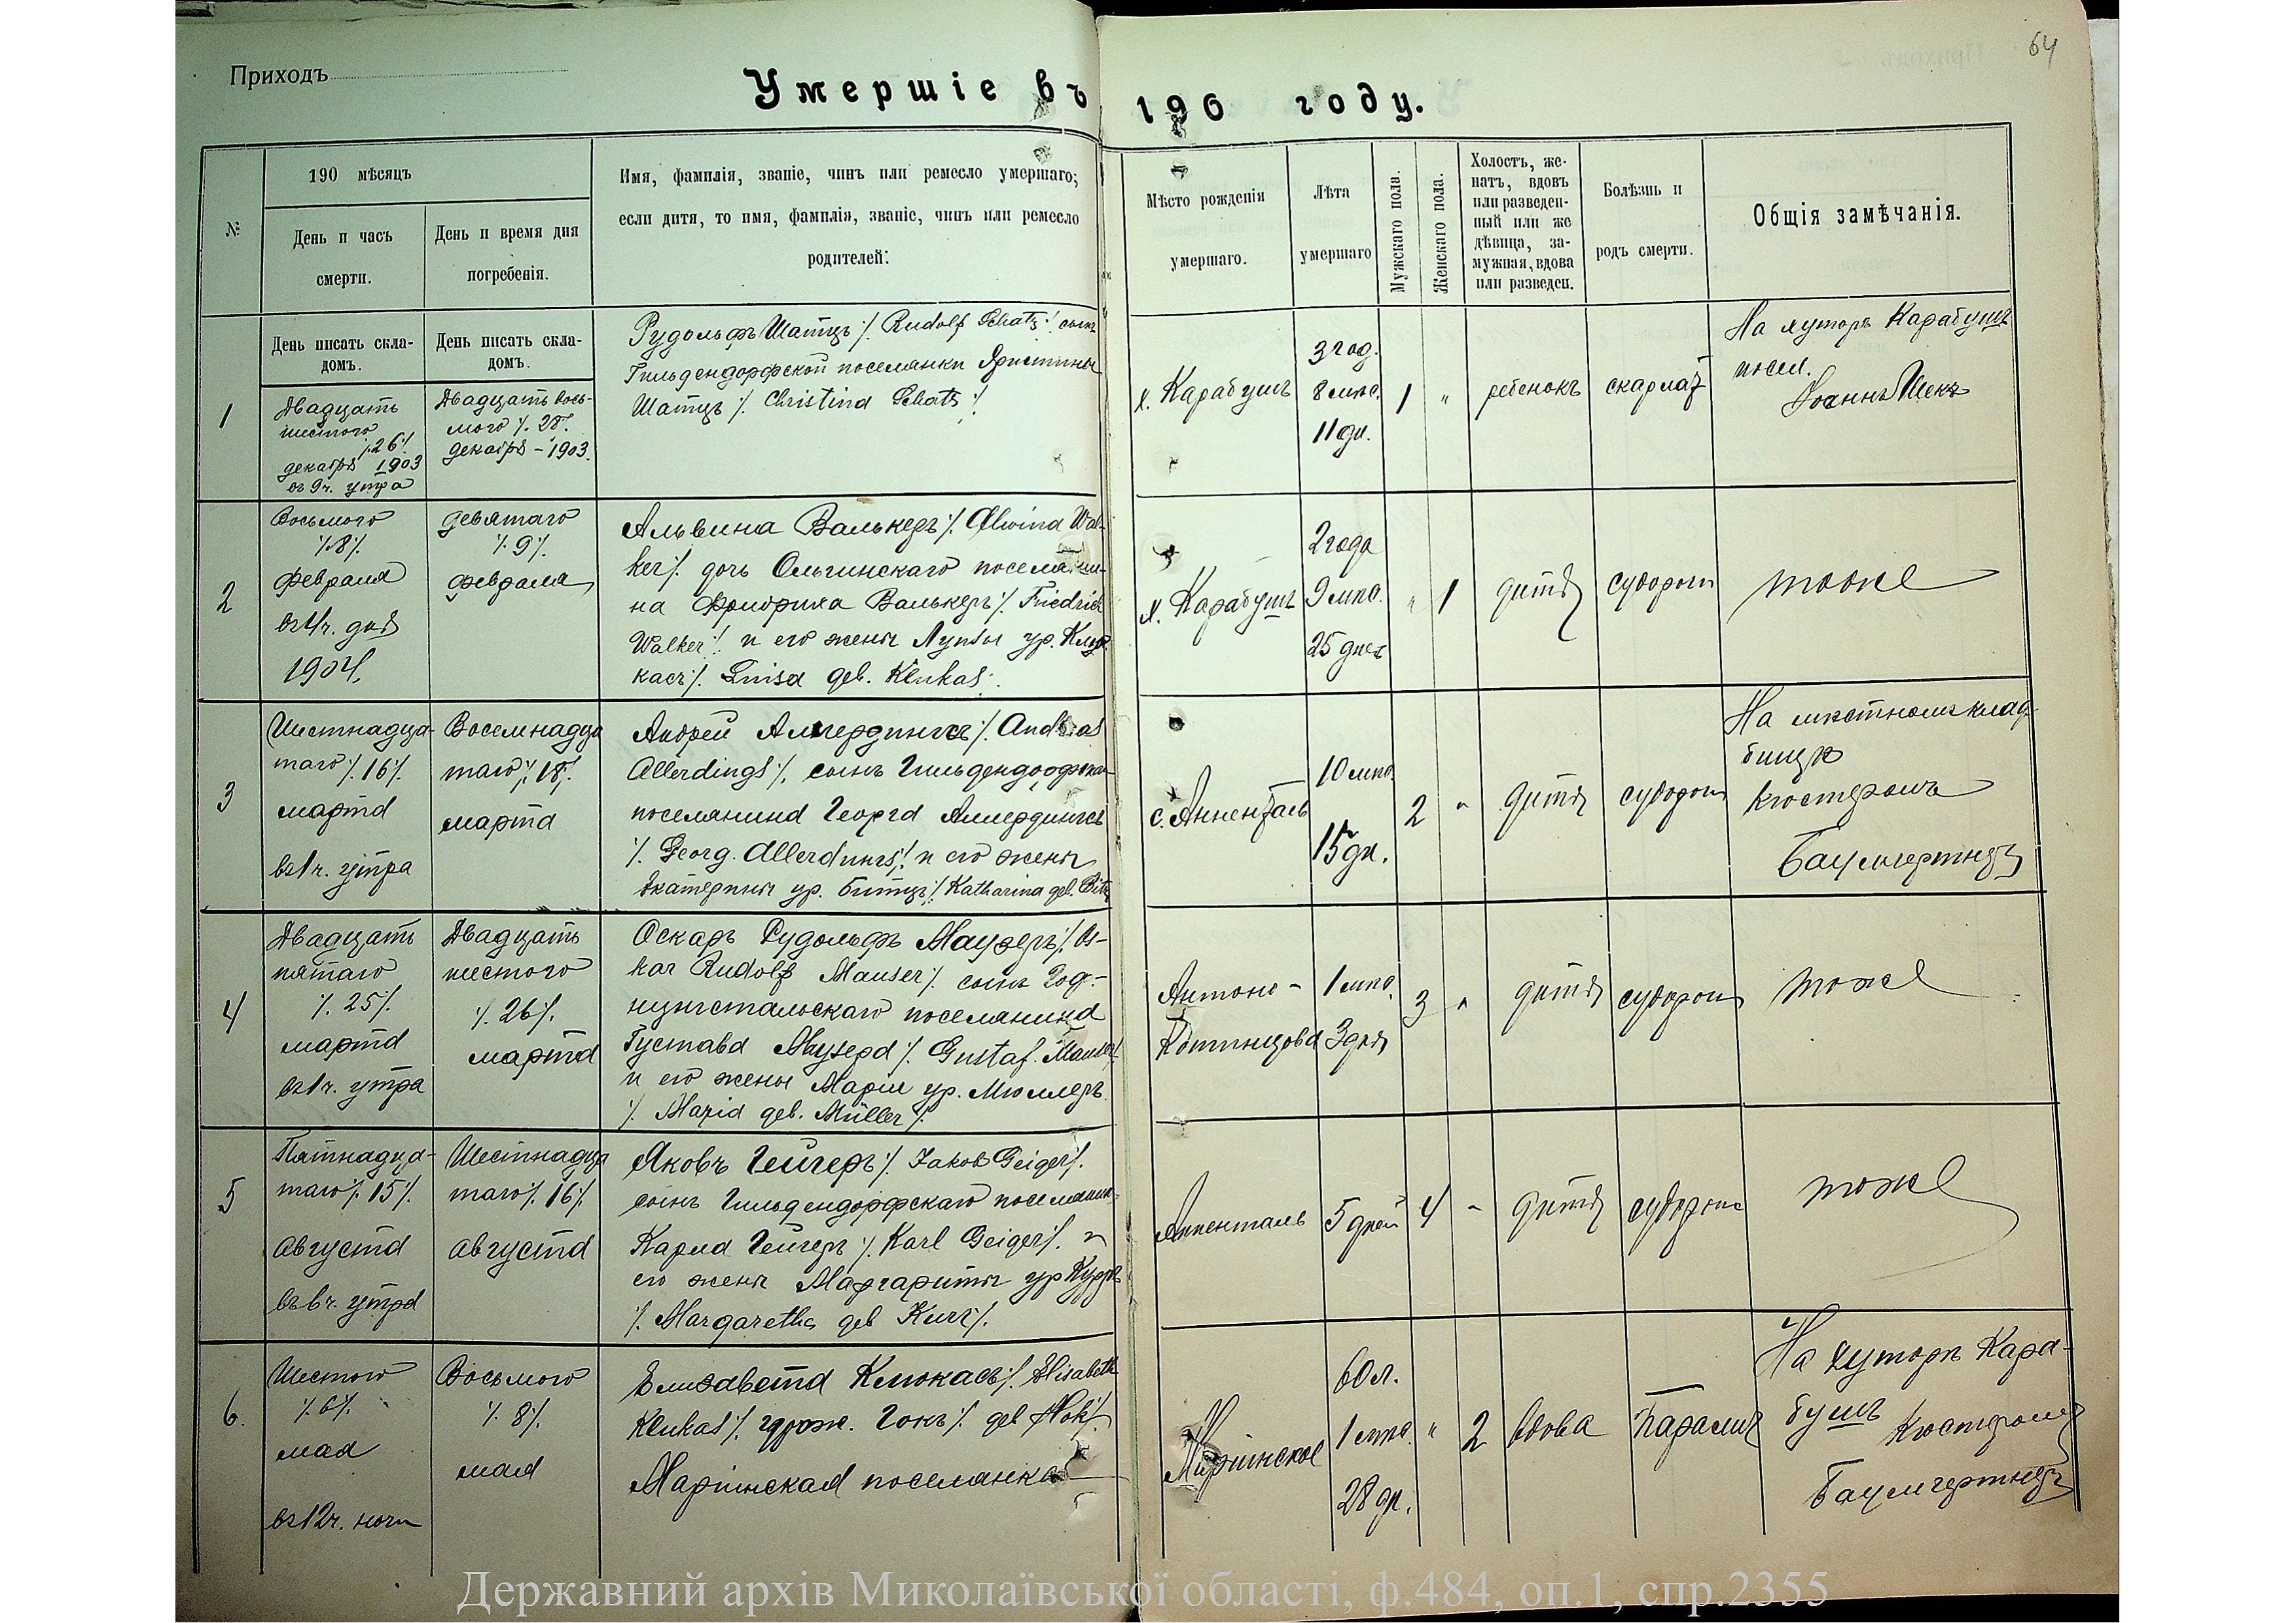 64
Приходъ
Умершіе въ 190 году.
№
190 мѣсяцъ
День и часъ
смерти.
День и время дня
погребенія.
Имя, фамилія, званіе, чинъ или ремесло умершаго;
если дитя, то имя, фамилія, званіе, чинъ или ремесло
родителей.
Мѣсто рожденія
умершаго.
Лѣта
умершаго
Мужскаго пола.
Женскаго пола.
Холостъ, же-
натъ, вдовъ
или разведен-
ный или же
дѣвица, за-
мужная, вдова
или разведен.
Болѣзнь и
родъ смерти.
Общія замѣчанія.
День писать скла-
домъ.
День писать скла-
домъ.
1
Двадцать
шестого
/.26./
декабря 1903
въ 9ч. утра
Двадцать вось-
мого /. 28./
декабря - 1903.
Рудольфъ Шатцъ /. Rudolf Schatz ./ сынъ
Гильдендорфской поселянки Христины
Шатцъ /. Christina Schatz ./
х. Карабушъ
3 год.
8 мѣс.
11 дн.
1
"
ребенокъ
скарлат
На хуторѣ Карабушъ
посел.
Іоаннъ Шекъ
2
Восьмого
/.8./
февраля
въ 4ч. дня
1904.
девятаго
/. 9./
февраля
Альвина Валькеръ /. Alwina Wal-
ker ./ дочь Ольгинскаго поселяни-
на Фридриха Валькеръ /. Friedrich
Walker ./ и его жены Луизы ур. Клу-
касъ /. Luisa geb. Klukas ./
х. Карабушъ
2 года
9 мѣс.
25 дней
"
1
дитя
судороги
тоже
3
Шестнадца-
таго /. 16./
марта
въ 1ч. утра
Восемнадца
таго /. 18./
марта
Андрей Аллердингсъ /. Andreas
Allerdings ./ сынъ Гильдендорфскаго
поселянина Георга Аллердингсъ
/. Georg. Allerdings ./ и его жены
Екатерины ур. Битцъ /. Katharina geb. Bitz
с. Анненталь
10 мѣс.
15 дн.
2
"
дитя
судороги
На мѣстномъ клад-
бищѣ
Кюстеромъ
Баумгертнеръ
4
Двадцать
пятаго
/. 25./
марта
въ 1ч. утра
Двадцать
шестого
/. 26./
марта
Оскаръ Рудольфъ Маузеръ /. Os-
kar Rudolf Mauser ./ сынъ
поселянина
Густава Маузера /. Gustaf. Mauser ./
и его жены Маріи ур. Мюллеръ
/. Maria geb. Müller ./
Антоно -
1 мѣс.
3 дня
3
"
дитя
судороги
тоже
5
Пятнадца-
таго /. 15./
августа
въ 6ч. утра
Шестнадца
таго /. 16./
августа
Яковъ Гейгеръ /. Jakob Geiger ./
сынъ Гильдендорфскаго поселянин.
Карла Гейгеръ /. Karl Geiger ./ и
его жены Маргариты ур Курцъ
/. Margaretha geb Kurz ./
Анненталь
5 дней
4
"
дитя
судороги
тоже
6.
Шестого
/. 6./
мая
въ 12ч. ночи
Восьмого
/. 8./
мая
Елизавета Клюкасъ /. Elisabeth
Klukas ./ урож. Гокъ /. geb Hok ./
Маріинская поселянка
Маріинское
60 л.
1 мѣс.
28 дн.
"
2
вдова
Паралич
На хуторѣ Кара-
бушъ
Кюстеромъ
Баумгертнеръ
Державний архів Миколаївської області, ф.484, оп.1, спр.2355